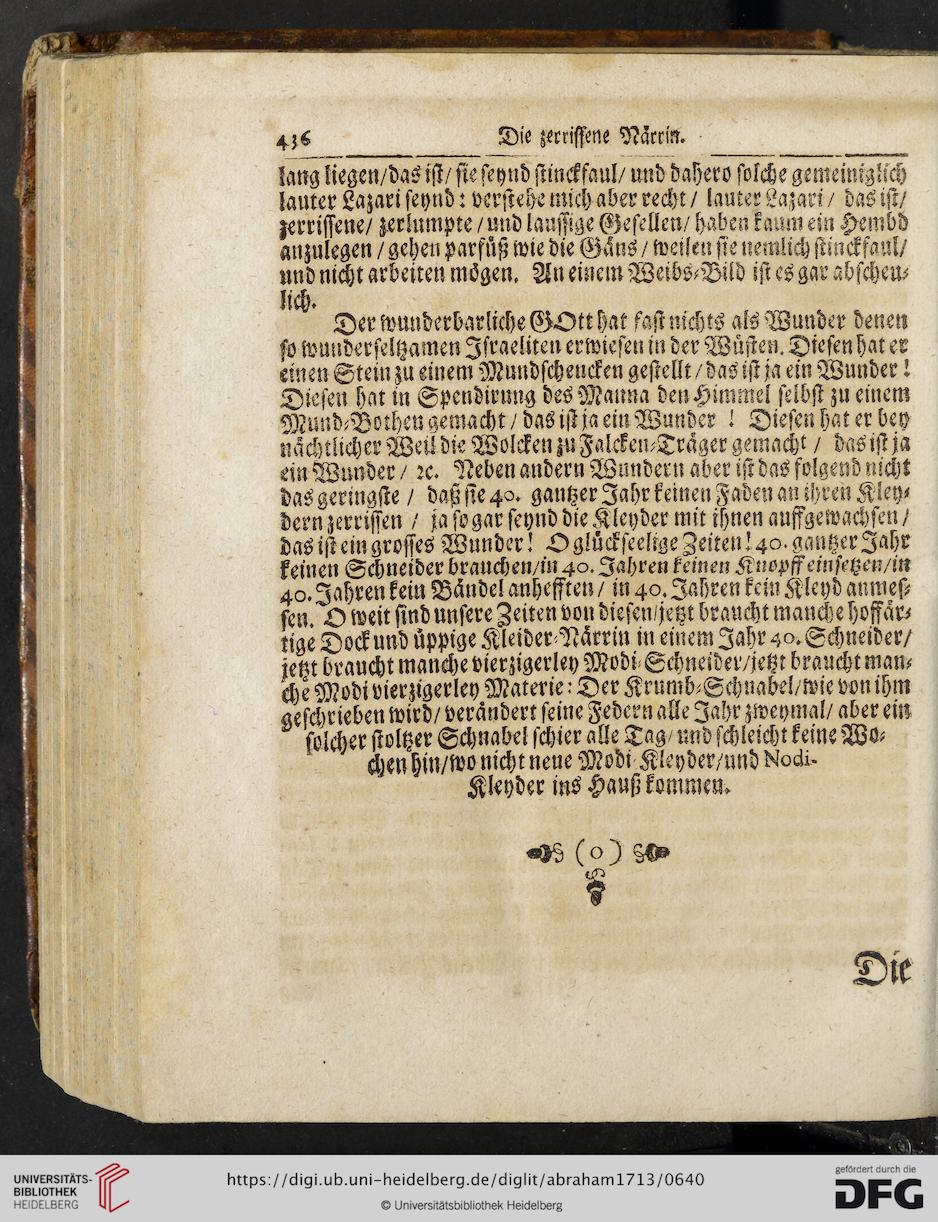 436 Die zerrissene Närrin.
lang liegen/das ist/ sie seynd stinckfaul/ und dahero solche gemeiniglich
lauter Lazari seynd: verstehe mich aber recht / lauter Lazari / das ist/
zerrissene/ zerlumpte / und laussige Gesellen/ haben kaum ein Hembd
anzulegen / gehen parfüß wie die Gäns / weilen sie nemlich stinckfaul/
und nicht arbeiten mögen. An einem Weibs-Bild ist es gar abscheu-
lich.
Der wunderbarliche GOtt hat fast nichts als Wunder denen
so wunderseltzamen Israeliten erwiesen in der Wüsten. Diesen hat er
einen Stein zu einem Mundschencken gestellt / das ist ja ein Wunder!
Diesen hat in Spendirung des Manna den Himmel selbst zu einem
Mund-Bothen gemacht / das ist ja ein Wunder ! Diesen hat er bey
nächtlicher Weil die Wolcken zu Falcken-Träger gemacht / das ist ja
ein Wunder / ꝛc. Neben andern Wundern aber ist das folgend nicht
das geringste / daß sie 40. gantzer Jahr keinen Faden an ihren Kley-
dern zerrissen / ja so gar seynd die Kleyder mit ihnen auffgewachsen /
das ist ein grosses Wunder! O glückseelige Zeiten! 40. gantzer Jahr
keinen Schneider brauchen/in 40. Jahren keinen Knopff einsetzen/in
40. Jahren kein Bändel anhefften / in 40. Jahren kein Kleyd anmes-
sen. O weit sind unsere Zeiten von diesen/jetzt braucht manche hoffär-
tige Dock und üppige Kleider-Närrin in einem Jahr 40. Schneider/
jetzt braucht manche vierzigerley Modi-Schneider/jetzt braucht man-
che Modi vierzigerley Materie: Der Krumb-Schnabel/wie von ihm
geschrieben wird/ verändert seine Federn alle Jahr zweymal/ aber ein
solcher stoltzer Schnabel schier alle Tag/ und schleicht keine Wo-
chen hin/wo nicht neue Modi-Kleyder/und Nodi-
Kleyder ins Hauß kommen.
(o)
Die
UNIVERSITÄTS-
BIBLIOTHEK
HEIDELBERG
https://digi.ub.uni-heidelberg.de/diglit/abraham1713/0640
© Universitätsbibliothek Heidelberg
gefördert durch die
DFG